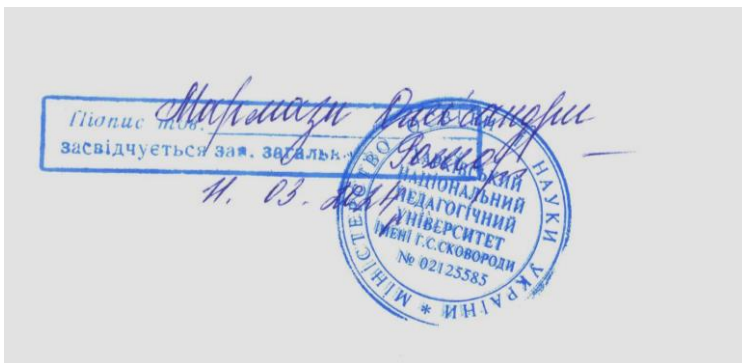 Підпис тов. Мармази Олександри
засвідчується зав. загальн.
11. 03. 2024
МІНІСТЕРСТВО НАУКИ УКРАЇНИ *
ХАРКІВСЬКИЙ
НАЦІОНАЛЬНИЙ
ПЕДАГОГІЧНИЙ
УНІВЕРСИТЕТ
ІМЕНІ Г.С.СКОВОРОДИ
№ 02125585